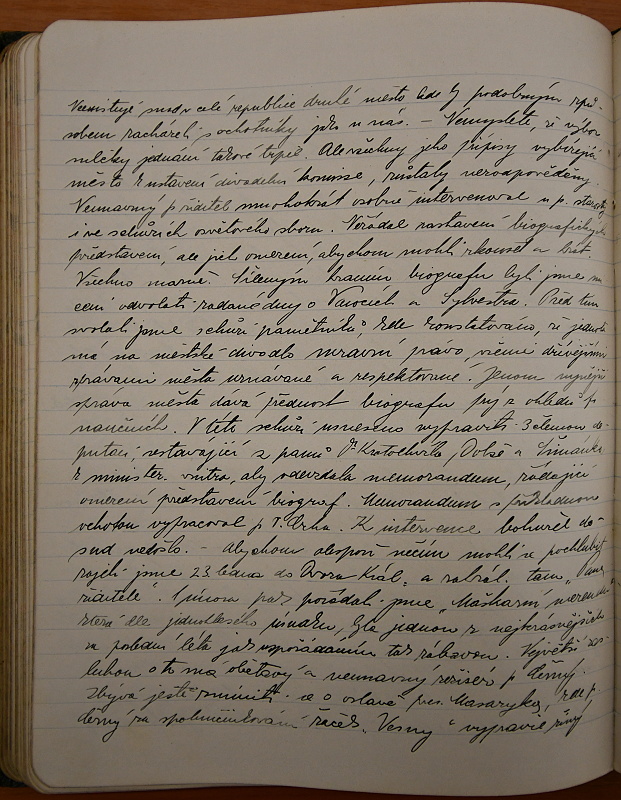 Neexistuje snad v celé republice druhé město kde by podobným způ-
sobem zacházeli s ochotníky jako u nás. – Nemyslete, že výbor
mlčky jednání takové trpěl. Ale všechny jeho přípisy vybízející
město k ustavení divadelní komise, zůstaly nezodpověděny.
Neúnavný p. ředitel mnohokrát osobně intervenoval u p. starosty
i ve schůzích osvětového sboru. Nežádal zastavení biografických
představení, ale jich omezení, abychom mohli zkoušet a hrát.
Všechno marné. Šíleným hraním biografu byli jsme nu-
ceni odvolati zadané dny o Vánocích a Sylvestra. Před tím
svolali jsme schůzi pamětníků, kde konstatováno, že jednota
má na městské divadlo mravní právo, všemi dřívějšími
správami města uznávané a respektované. Jenom nynější
správa města dává přednost biografu prý z ohledů fi-
nančních. V této schůzi usneseno vypraviti 3 člennou de-
putaci, sestávající z pánů Dr Kratochvíla, Dolše a Šimánka
k minister. vnitra, aby odevzdala memorandum, žádající
omezení představení biograf. Memorandum s
vypracoval p. T. Črna. K intervenci bohužel do-
sud nedošlo. – Abychom alespoň něčím mohli se pochlubit
zajeli jsme 23 ledna do Dvora Král. a sehráli tam „
ředitele. V únoru pak pořádali jsme „Maškarní merendu“
která dle jednohlasého úsudku, byla jednou z nejkrásnějších
za poslední léta jak uspořádáním tak zábavou. Největší zás-
luhou o to má obětavý a neúnavný režisér p. Černý.
Zbývá ještě zmíniti se o oslavě pres. Masaryka, kde p.
Černý za spoluúčinkování žaček „Vesny“ vypravil živý